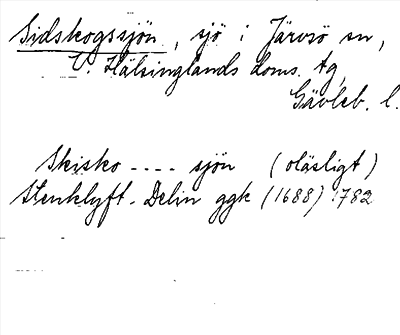 Sidskogssjön, sjö i Järvsö sn,
V. Hälsinglands doms. tg,
Gävleb. l.
Skisko ---- sjön (oläsligt)
Stenklyft. Delin ggk (1688) 1782